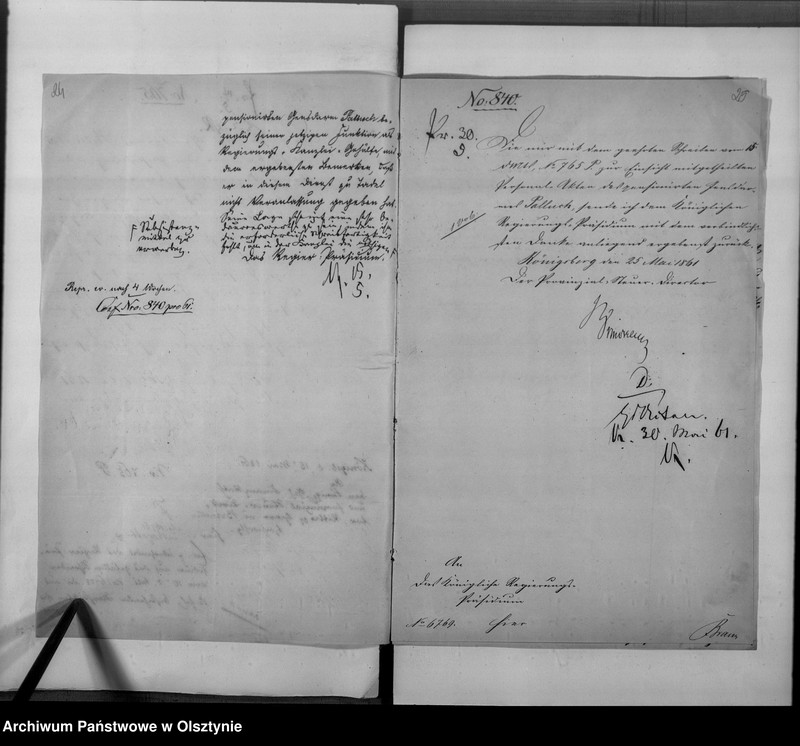 24
pensionirten Gensdarm Pattock be-
züglich seiner jetzigen Funktion als
Regierungs-Kanzlei-Gehülfe, mit
dem ergebensten Bemerken, daß
er in diesem Dienst zu Tadel
nicht Veranlassung gegeben hat.
Seine Lage
Das Regier. Präsidium.
Rep. er. nach 4 Wochen.
Cf. Nro. 840 pro 61.
No. 840.
25
Pr. 30.
Die mir mit dem geehrten Schreiben vom 15
d. Mts. No 765 P. zur Einsicht mitgetheilten
Personal-Akten des pensionirten Gensdar-
men Pattock, sende ich dem Königlichen
Regierungs-Präsidium mit dem verbindlich-
sten Danke anliegend ergebenst zurück.
Königsberg den 25 Mai 1861
Der Provinzial-Steuer-Director
Zu den Akten.
30. Mai 61.
An
das Königliche Regierungs-
Präsidium
No 6769. hier
Archiwum Państwowe w Olsztynie